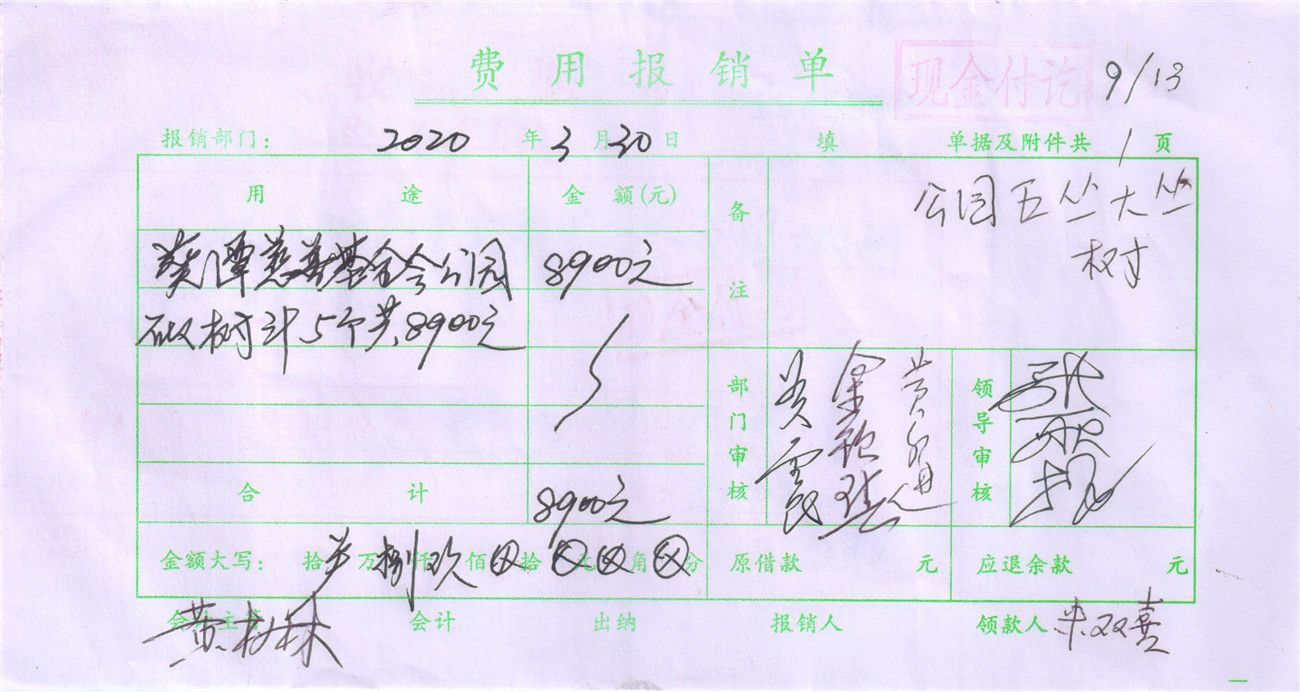 费用报销单
现金付讫
9/13
报销部门： 2020年3月30日 填 单据及附件共1页
用途 金额(元) 备注
公园五丛大丛
树
葵潭慈善基金会公园 8900元
树计5个共8900元
部门审核 领导审核
合计 8900元
金额大写： 拾 万捌仟玖佰⊗拾⊗元⊗角⊗分 原借款 元 应退余款 元
会计主管 会计 出纳 报销人 领款人